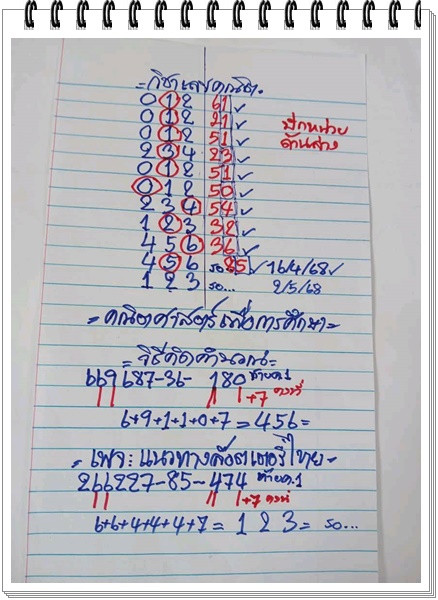 =วิชาเลขคณิต.
0 1 2 61 ✓
0 1 2 21 ✓
0 1 2 51 ✓
2 3 4 23 ✓
0 1 2 51 ✓
0 1 2 50 ✓
2 3 4 54 ✓
1 2 3 32 ✓
4 5 6 36 ✓
4 5 6 รอ 85 ✓ 16/4/68 ✓
1 2 3 รอ... 2/5/68
ปักหน่วย
ด้านล่าง
=คณิตศาสตร์เพื่อการศึกษา=
=วิธีคิดคำนวณ=
669687-36- 180 ท้ายด.1
+7 คงที่
6+9+1+1+0+7=456=
=เพจ:แนวทางล็อตเตอรี่ไทย=
266227-85-474 ท้ายด.1
+7 คงที่
6+6+4+4+4+7= 1 2 3= รอ...